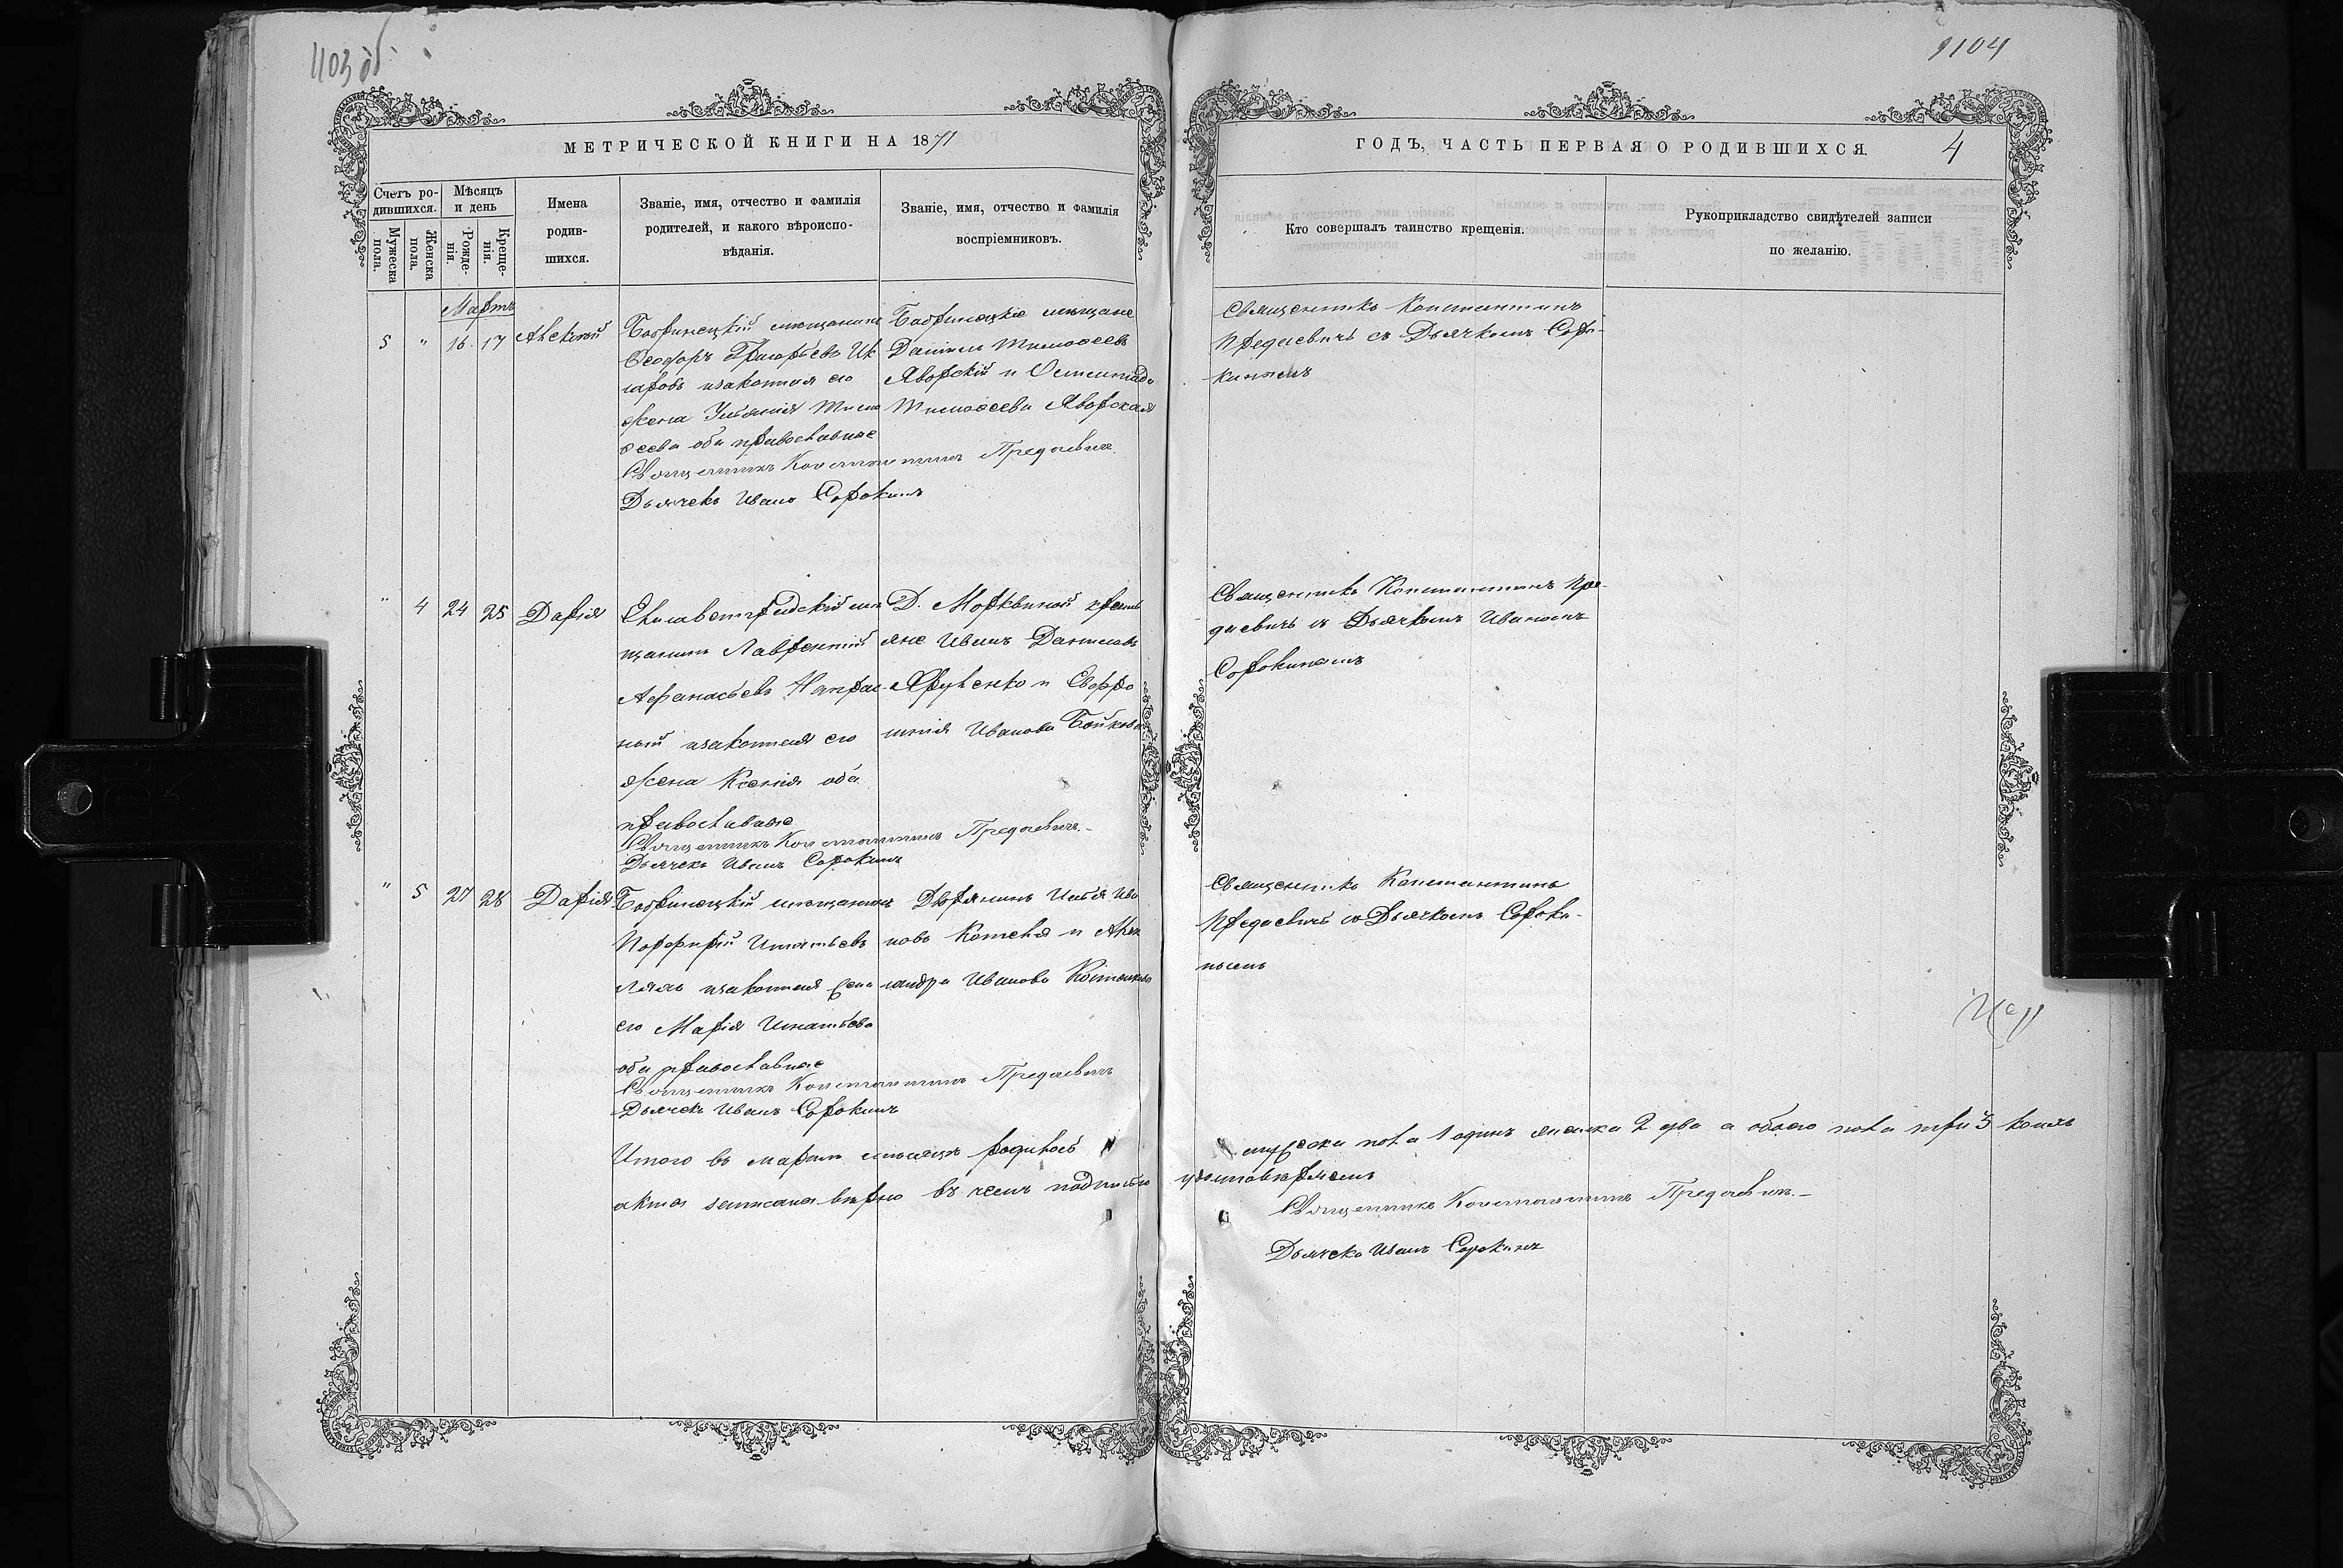 1103 об
1104
МЕТРИЧЕСКОЙ КНИГИ НА 1871
ГОДЪ, ЧАСТЬ ПЕРВАЯ О РОДИВШИХСЯ.
4
Счетъ ро-
дившихся.
Мужеска
пола.
Женска
пола.
Мѣсяцъ
и день
Рожде-
нія.
Креще-
нія.
Имена
родив-
шихся.
Званіе, имя, отчество и фамилія
родителей, и какого вѣроиспо-
вѣданія.
Званіе, имя, отчество и фамилія
воспріемниковъ.
Кто совершалъ таинство крещенія.
Рукоприкладство свидѣтелей записи
по желанію.
Мартъ
5 " 16 17 Алексѣй
Бобринецкій мѣщанинъ
Ѳеодоръ Григорьевъ
изаконная его
жена Ульянія Тимо
ѳеева оба православные
Священникъ Константинъ Предаевичъ
Дьячекъ Иванъ Сорокинъ
Бобринецкіе мѣщане
Даніилъ Тимоѳеевъ
Яворскій и
Тимоѳеева Яворская
Священникъ Константинъ
Предаевичъ съ Дьячкомъ Соро-
кинымъ
" 4 24 25 Дарія
Елисаветградскій мѣ
щанинъ Лаврентій
Афанасьевъ Напрас-
ный изаконная его
жена Ксенія оба
православные
Священникъ Константинъ Предаевичъ.-
Дьячекъ Иванъ Сорокинъ
Д. Морквиной кресть
яне Иванъ Даниловъ
и Евфро
синія Иванова
Священникъ Константинъ Пре-
даевичъ съ Дьячкомъ Иваномъ
Сорокинымъ
" 5 27 28 Дарія
Бобринецкій мѣщанинъ
Порфирій Игнатьевъ
изаконная жена
его Марія Игнатьева
оба православные
Священникъ Константинъ Предаевичъ
Дьячекъ Иванъ Сорокинъ
Дворянинъ Илья Ива
новъ и Алек
сандра Иванова
Священникъ Константинъ
Предаевичъ съ Дьячкомъ Сороки-
нымъ
Итого въ мартѣ мѣсяцѣ родилось мужска пола 1 одинъ женска 2 два а обоего пола три 3 коихъ
акта записана вѣрно въ чемъ подписью удостовѣряемъ
Священникъ Константинъ Предаевичъ.-
Дьячекъ Иванъ Сорокинъ